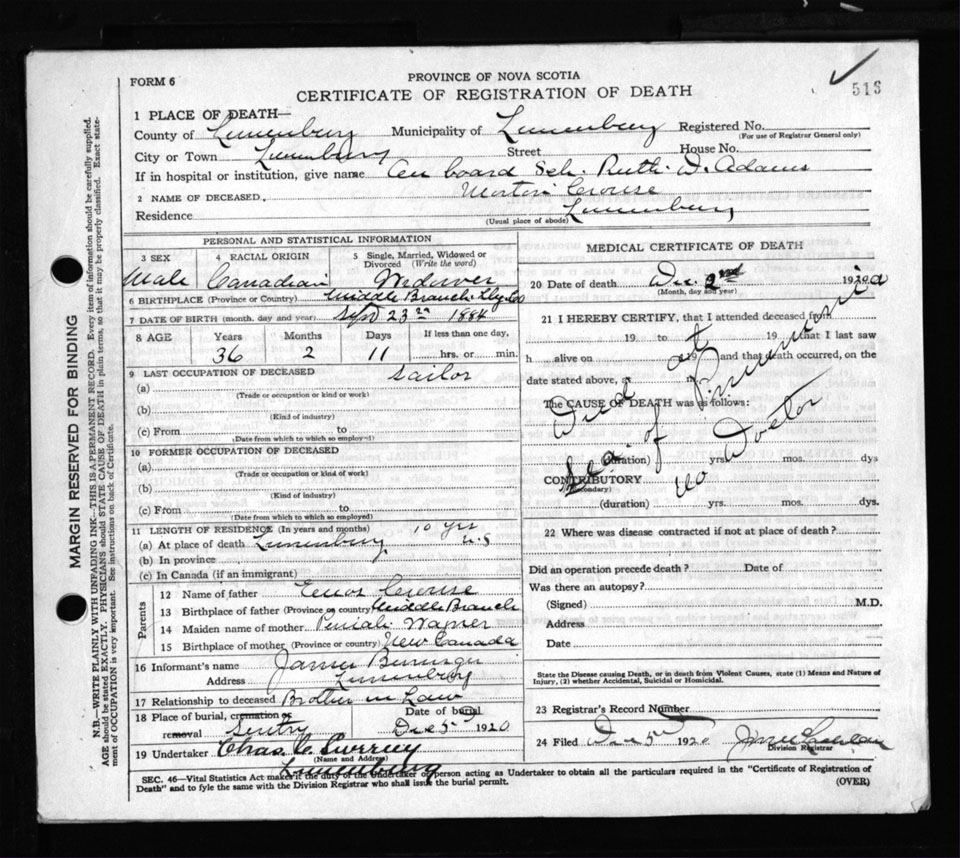 FORM 6
PROVINCE OF NOVA SCOTIA
CERTIFICATE OF REGISTRATION OF DEATH
516
1 PLACE OF DEATH—
County of Lunenburg Municipality of Lunenburg Registered No.
(For use of Registrar General only)
City or Town Lunenburg Street House No.
If in hospital or institution, give name On board Sch. Ruth D. Adams
2 NAME OF DECEASED. Crouse
Residence Lunenburg
(Usual place of abode)
PERSONAL AND STATISTICAL INFORMATION
3 SEX 4 RACIAL ORIGIN 5 Single, Married, Widowed or Divorced (Write the word)
Male Canadian Widower
6 BIRTHPLACE (Province or Country) Middle Branch
7 DATE OF BIRTH (month, day and year) Sept 23rd 1884
8 AGE Years Months Days If less than one day,
36 2 11 hrs. or min.
9 LAST OCCUPATION OF DECEASED Sailor
(a)
(Trade or occupation or kind or work)
(b)
(Kind of industry)
(c) From to
(Date from which to which so employed)
10 FORMER OCCUPATION OF DECEASED
(a)
(Trade or occupation or kind of work)
(b)
(Kind of industry)
(c) From to
(Date from which to which so employed)
11 LENGTH OF RESIDENCE (In years and months) 10 yrs
(a) At place of death Lunenburg
(b) In province
(c) In Canada (if an immigrant)
Parents
12 Name of father Enos Crouse
13 Birthplace of father (Province or country) Middle Branch
14 Maiden name of mother Wagner
15 Birthplace of mother (Province or country) New Canada
16 Informant's name James
Address Lunenburg
17 Relationship to deceased Brother in Law
18 Place of burial, cremation or removal Date of burial
Dec 5th 1920
19 Undertaker Chas
(Name and Address)
Lunenburg
MEDICAL CERTIFICATE OF DEATH
20 Date of death Dec. 2nd 1920
(Month, day and year)
21 I HEREBY CERTIFY, that I attended deceased from
19 to 19 that I last saw
h alive on 19 and that death occurred, on the
date stated above, at
The CAUSE OF DEATH was as follows:
Died at Sea of Pneumonia
no Doctor
(duration) yrs. mos. dys
CONTRIBUTORY
(Secondary)
(duration) yrs. mos. dys.
22 Where was disease contracted if not at place of death?
Did an operation precede death? Date of
Was there an autopsy?
(Signed) M.D.
Address
Date
State the Disease causing Death, or in death from Violent Causes, state (1) Means and Nature of
Injury, (2) whether Accidental, Suicidal or Homicidal.
23 Registrar's Record Number
24 Filed Dec 5th 1920
Division Registrar
SEC. 46—Vital Statistics Act makes it the duty of the Undertaker or person acting as Undertaker to obtain all the particulars required in the "Certificate of Registration of
Death" and to fyle the same with the Division Registrar who shall issue the burial permit.
(OVER)
MARGIN RESERVED FOR BINDING
N.B.—WRITE PLAINLY WITH UNFADING INK—THIS IS A PERMANENT RECORD. Every item of information should be carefully supplied.
AGE should be stated EXACTLY. PHYSICIANS should STATE CAUSE OF DEATH in plain terms, so that it may be properly classified. Exact state-
ment of OCCUPATION is very important. See instructions on back of Certificate.